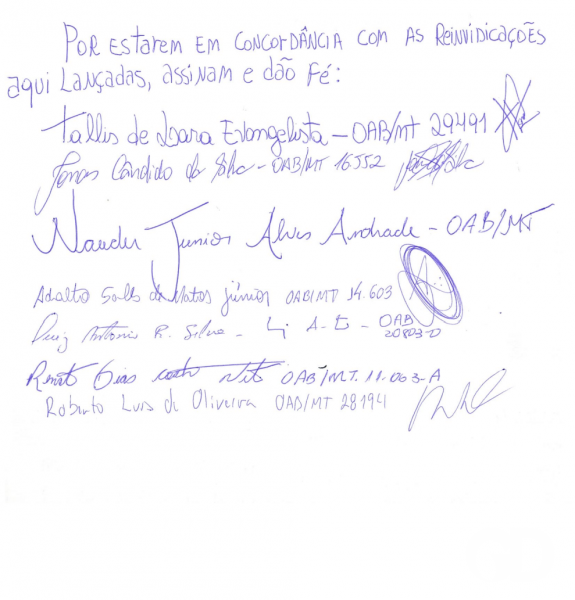 Por estarem em concordância com as reinvidicações
aqui lançadas, assinam e dão fé:
Tallis de Lara Evangelista - OAB/MT 29491
Jonas Candido da Silva - OAB/MT 16552
Nauder Junior Alves Andrade - OAB/MT
Adalto Salles de Matos Júnior OAB/MT 14.603
Luiz Antonio R. Silva - OAB
20803-O
Renato Dias Neto OAB/MT. 11.063-A
Roberto Luis de Oliveira OAB/MT 28194